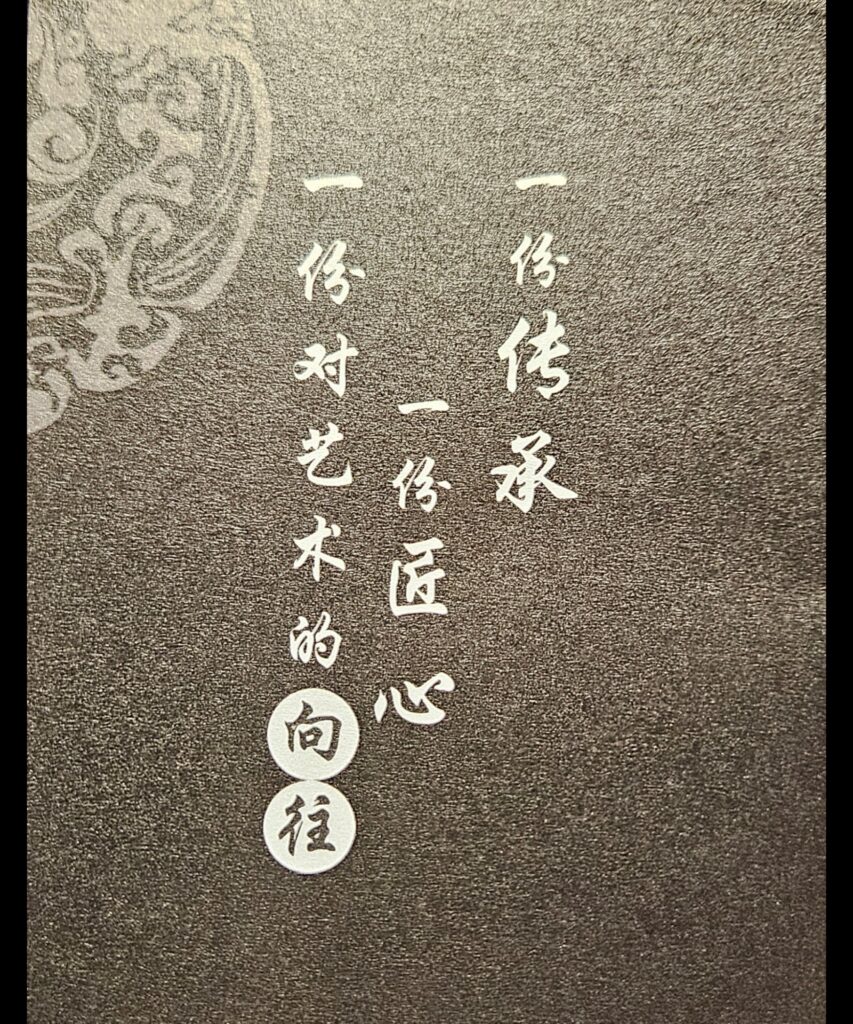 一份传承
一份匠心
一份对艺术的向往